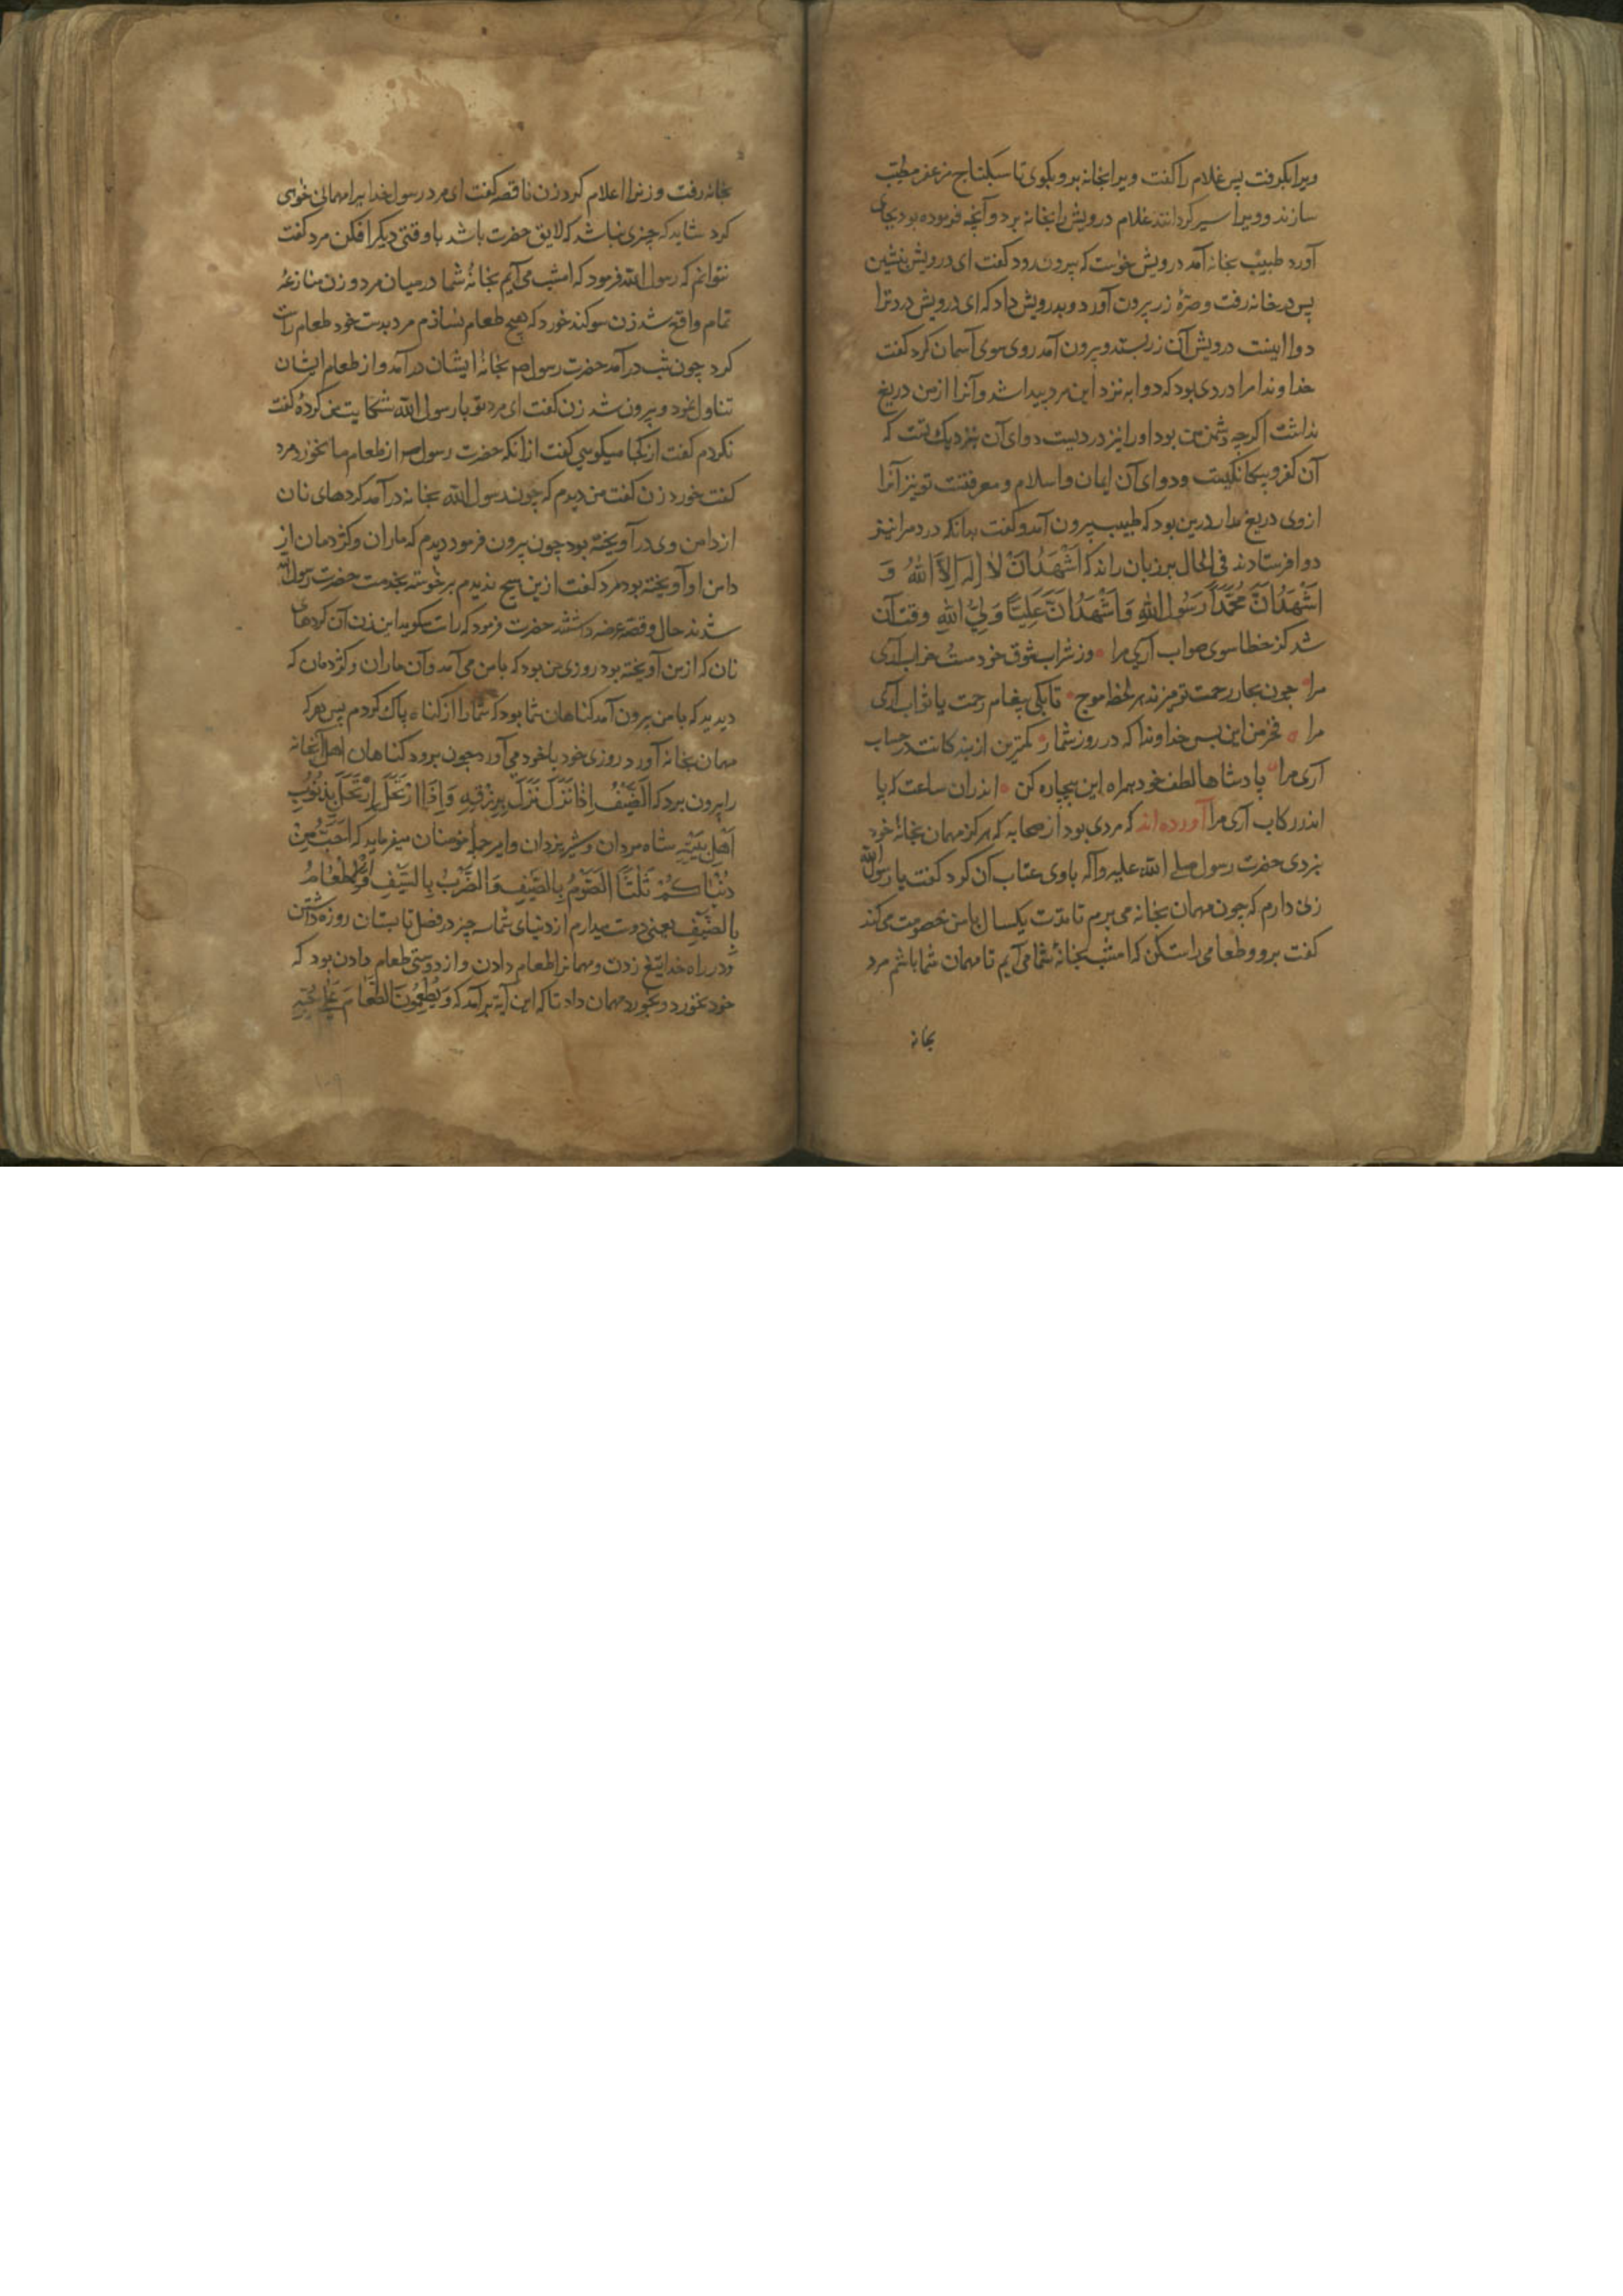 ویرا بکرفت پس غلام را کفت ویرا بخانه بر و بکوی تا سکبائی مزعفر مطیب
سازند و ویرا سیر کردانند غلام درویش را بخانه برد و آنچه فرموده بود بجای
آورد طبیب بخانه آمد درویش خواست که بیرون رود کفت ای درویش بنشین
پس در خانه رفت و صرهٔ زر بیرون آورد و بدرویش داد که ای درویش درد ترا
دوا اینست درویش آن زر بستد و بیرون آمد روی سوی آسمان کرد کفت
خداوندا مرا دردی بود که دوا به نزد این مرد پیدا شد و آنرا از من دریغ
نداشت اکرچه دشمن من بود او را نیز دردیست دوای آن بنزدیک تست که
آن کفر و بیکانکیست و دوای آن ایمان و اسلام و معرفتست تو نیز آنرا
از وی دریغ مدار درین بود که طبیب بیرون آمد و کفت بدانکه درد مرا نیز
دوا فرستادند فی الحال بر زبان راند که اَشْهَدُ اَنْ لا اِلهَ اِلاَّ اللهُ وَ
اَشْهَدُ اَنَّ مُحَمَّدًا رَسُولُ اللهِ وَ اَشْهَدُ اَنَّ عَلِیًّا وَلِیُّ اللهِ وقت آن
شد کز خطا سوی صواب آری مرا ٥ وز شراب شوق خود مست خراب آری
مرا ٥ چون بحار رحمتت تو میزند هر لحظه موج ٥ تا بکی پیغام رحمت یا ثواب آری
مرا ٥ فخر من این بس خداوندا که در روز شمار ٥ کمترین از بندکانت در حساب
آری مرا ٥ پادشاها لطف خود همراه این بیچاره کن ٥ اندران ساعت که پا
اندر رکاب آری مرا آورده اند که مردی بود از صحابه که هرکز مهمان بخانهٔ خود
نبردی حضرت رسول صلی الله علیه وآله با وی عتاب آن کرد کفت یا رسول الله
زنی دارم که چون مهمان بخانه می برم تا مدت یکسال با من خصومت می کند
کفت برو و طعامی راست کن که امشب بخانهٔ شما می آیم تا مهمان شما باشم مرد
بخانه
بخانه رفت و زنرا اعلام کرد زن ناقصه کفت ای مرد رسول خدا یرا مهمانی خواهی
کرد شاید که چیزی نباشد که لایق حضرت باشد با وقتی دیکر افکن مرد کفت
نتوانم که رسول الله فرمود که امشب می آیم بخانهٔ شما درمیان مرد و زن منازعهٔ
تمام واقع شد زن سوکند خورد که هیچ طعام نسازم مرد بدست خود طعام راست
کرد چون شب درآمد حضرت رسول ص بخانهٔ ایشان درآمد و از طعام ایشان
تناول نمود و بیرون شد زن کفت ای مرد تو با رسول الله شکایت من کردهٔ کفت
نکردم کفت از کجا میکویی کفت ازانکه حضرت رسول ص از طعام ما نخورد مرد
کفت خورد زن کفت من دیدم که چون رسول الله بخانه درآمد کردهای نان
از دامن وی درآویخته بود چون بیرون فرمود دیدم که ماران و کژدمان از
دامن او آویخته بود مرد کفت ازین هیچ ندیدم برخواستند بخدمت حضرت رسول الله
شدند حال و قصه عرضه داشتند حضرت فرمود که راست میکوید این زن آن کردهای
نان که از من آویخته بود روزی من بود که با من می آمد و آن ماران و کژدمان که
دیدید که با من بیرون آمد کناهان شما بود که شما را از کناه پاک کردم پس هر که
مهمان بخانه آورد روزی خود با خود می آورد چون برود کناهان اهل آنخانه
را بیرون برد که اَلضَّیْفُ اِذَا نَزَلَ نَزَلَ بِرِزْقِهِ وَ اِذَا ارْتَحَلَ اِرْتَحَلَ بِذُنُوبِ
اَهْلِ بَیْتِهِ شاه مردان و شیر یزدان و امیر جمله مؤمنان میفرماید که اُحِبُّ مِنْ
دُنْیَاکُمْ ثَلٰثًا اَلصَّوْمُ بِالصَّیْفِ وَ الضَّرْبُ بِالسَّیْفِ وَ اِطْعَامُ
بِالضَّیْفِ یعنی دوست میدارم از دنیای شما سه چیز در فصل تابستان روزه داشتن
و در راه خدا تیغ زدن و مهمانرا طعام دادن و از دوستی طعام دادن بود که
خود نخورد و بخورد مهمان داد تا که این آیه برآمد که وَ یُطْعِمُونَ الطَّعَامَ عَلٰی حُبِّهِ
١٠٩